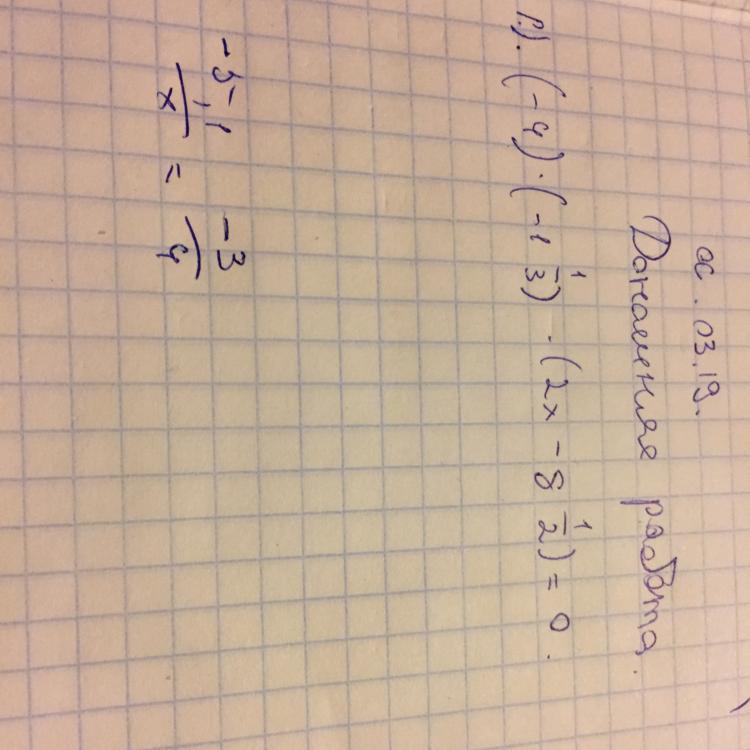 .03.19.
Домашняя работа.
г). (-4) · (-1 1/3) · (2x - 8 1/2) = 0.
-5,1/x = -3/4